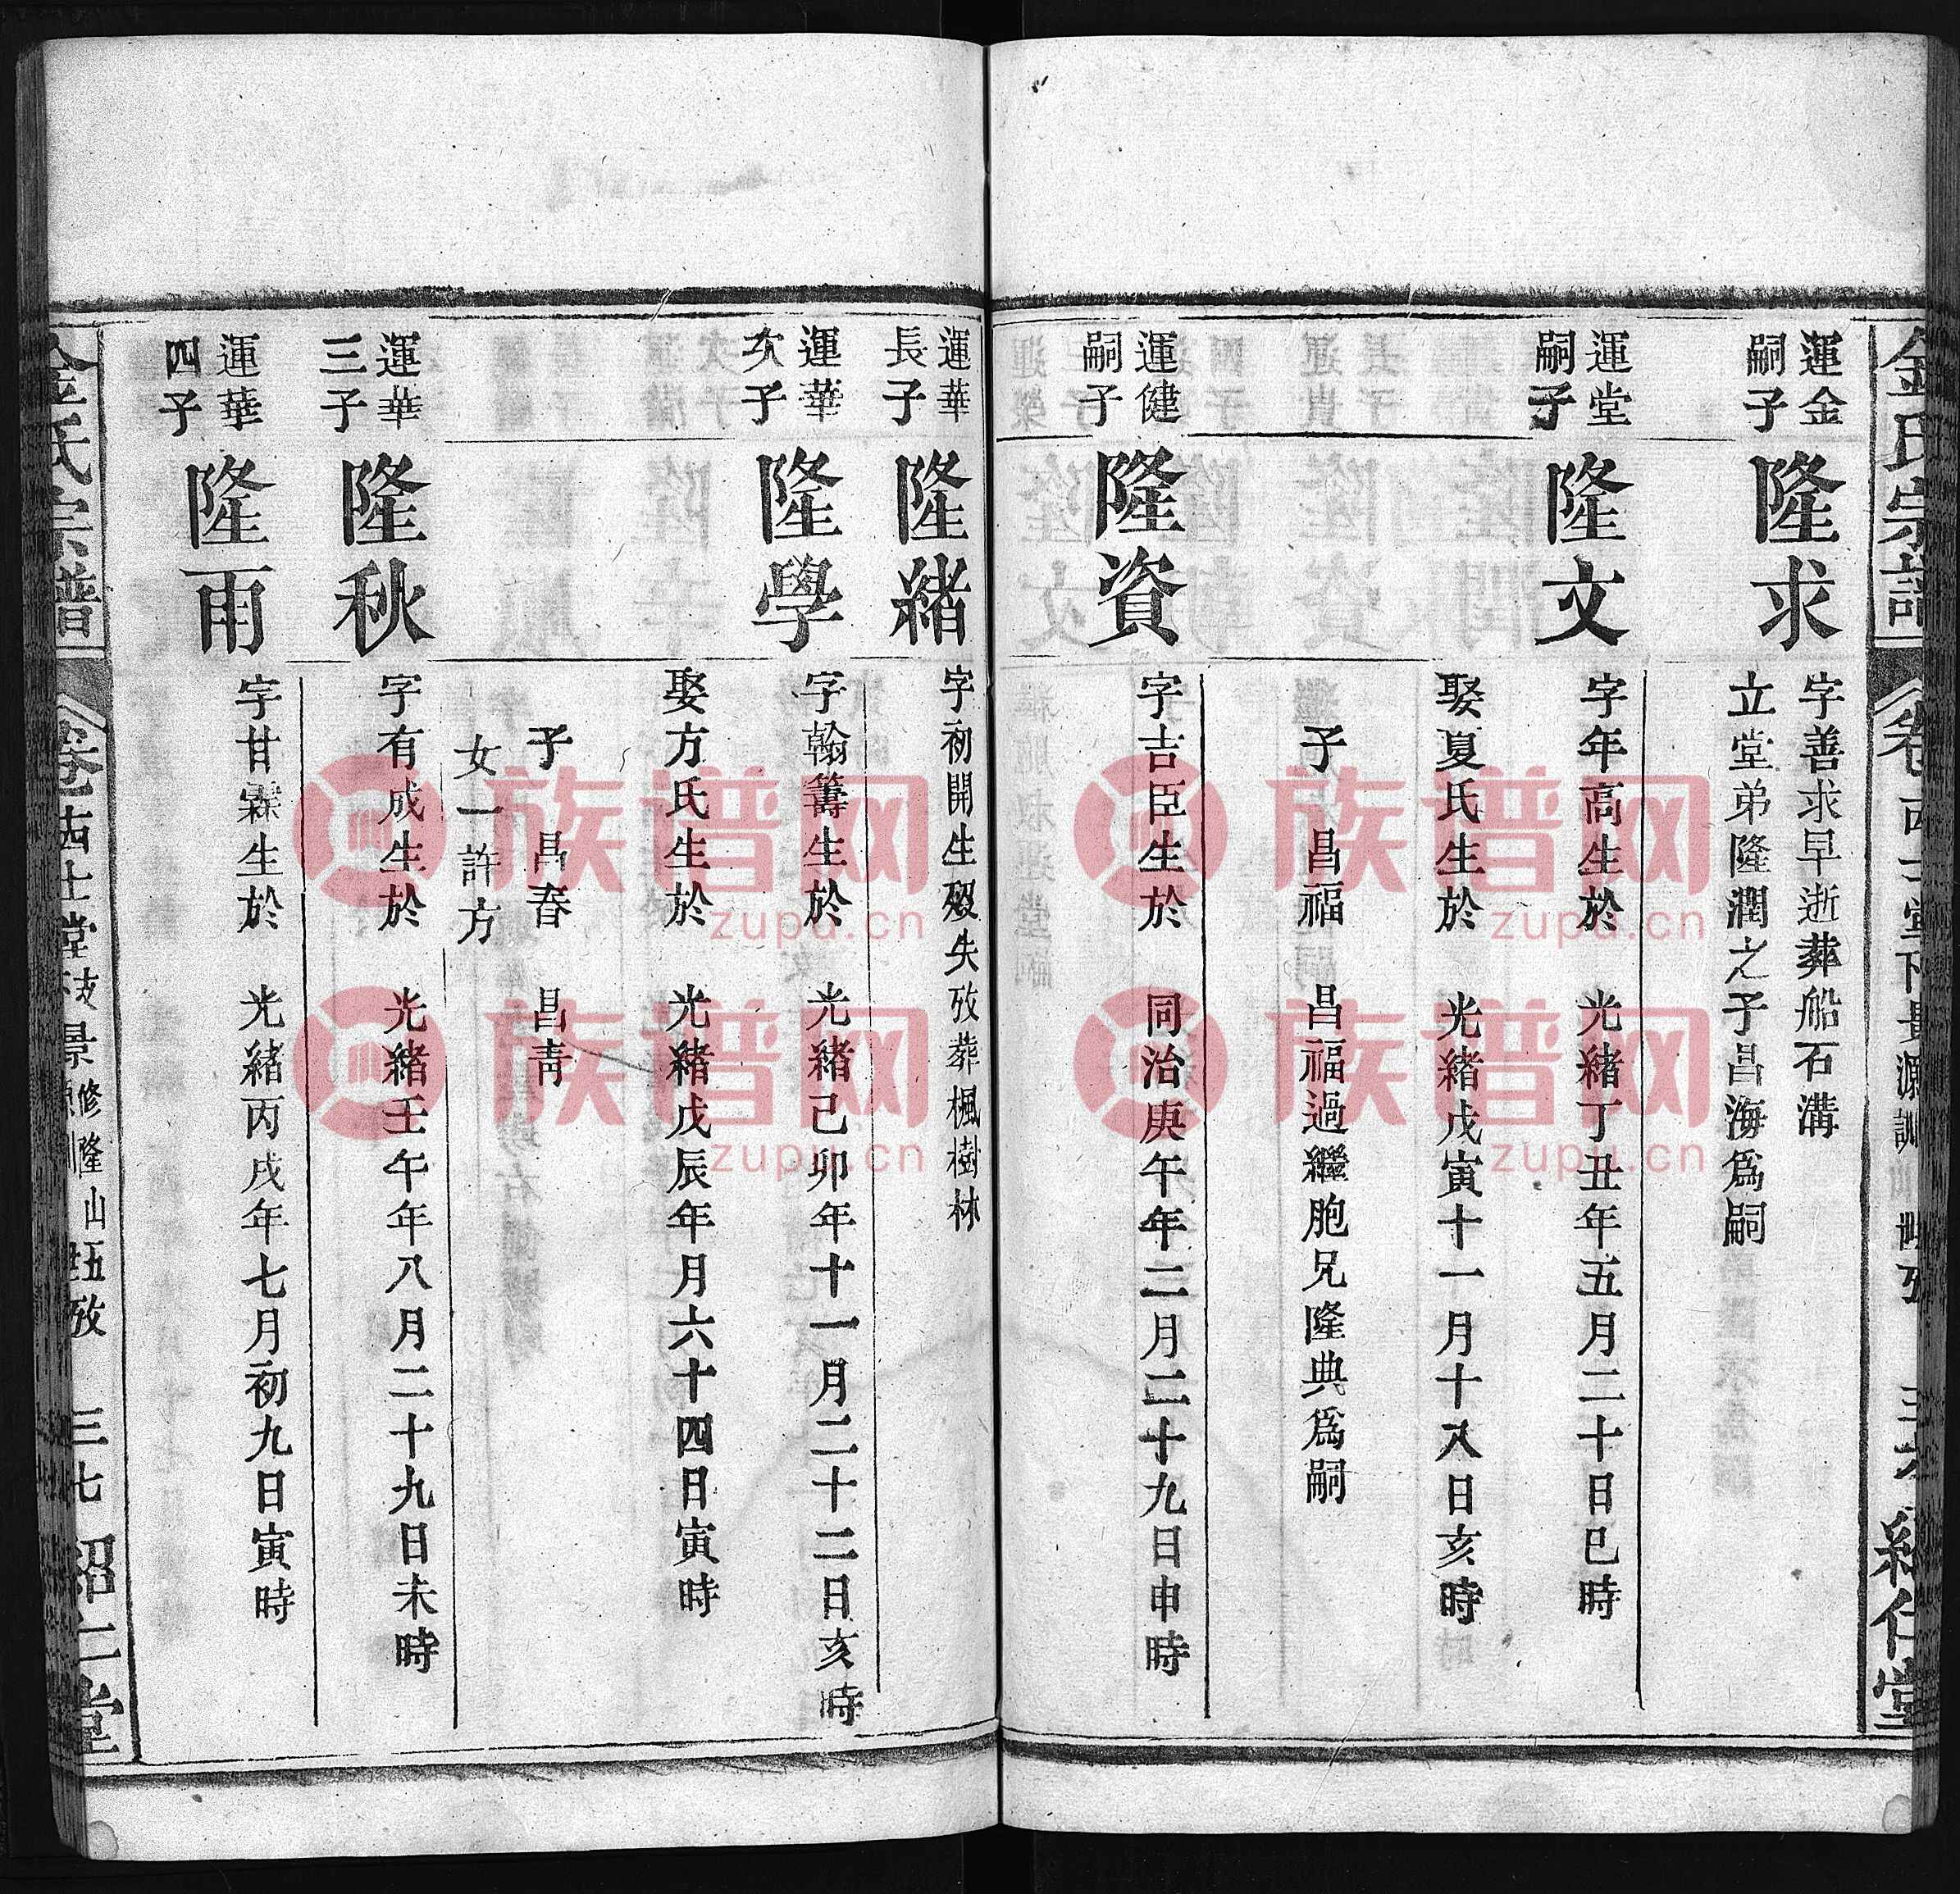 金氏宗譜
運金
嗣子
隆求
字善求早逝葬船石溝
立堂弟隆潤之子昌海爲嗣
運堂
嗣子
隆文
字年高生於 光緒丁丑年五月二十日巳時
娶夏氏生於 光緒戊寅十一月十八日亥時
子 昌福 昌福過繼胞兄隆典爲嗣
運健
嗣子
隆資
字吉臣生於 同治庚午年二月二十九日申時
運華
長子
隆緒
字初開生歿失攷葬楓樹林
運華
次子
隆學
字翰籌生於 光緒己卯年十一月二十二日亥時
娶方氏生於 光緒戊辰年月六十四日寅時
子 昌春 昌靑
女一許方
運華
三子
隆秋
字有成生於 光緒壬午年八月二十九日未時
運華
四子
隆雨
字甘霖生於 光緒丙戌年七月初九日寅時
金氏宗譜
三七
紹仁堂
族谱网
zupu.cn
族谱网
zupu.cn
族谱网
zupu.cn
族谱网
zupu.cn